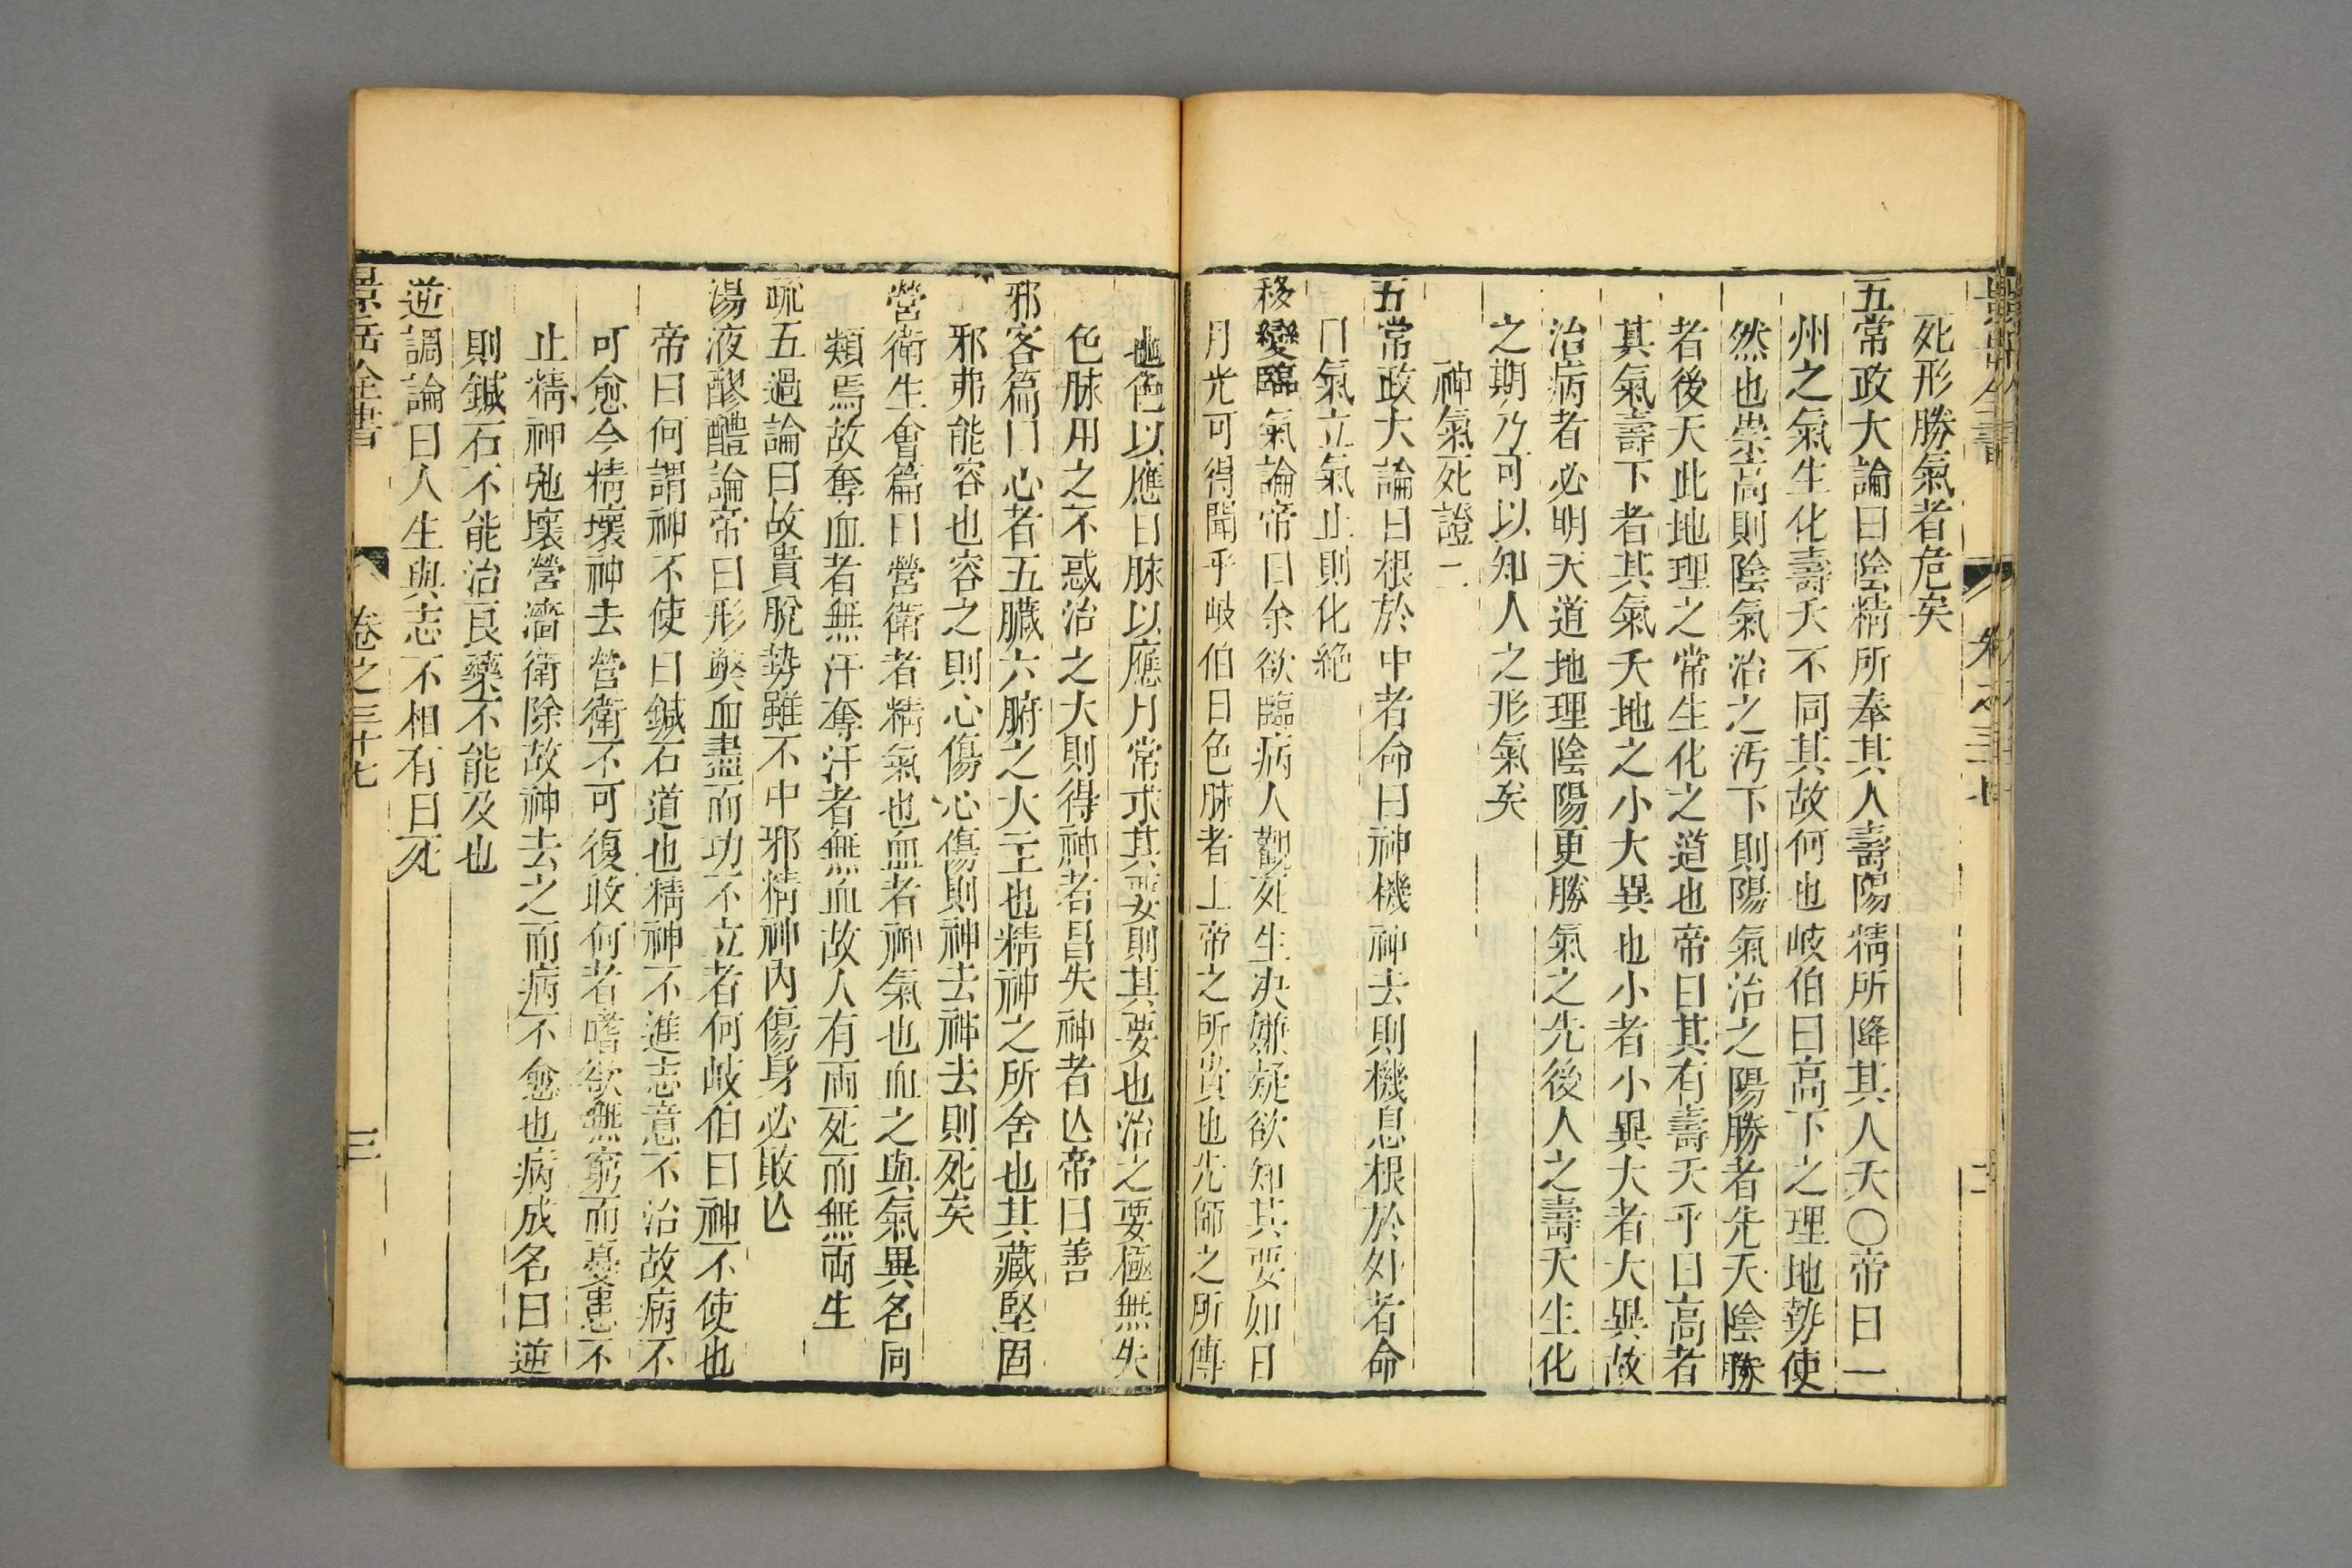 死形勝氣者危矣
五常政大論曰陰精所奉其人壽陽精所降其人夭〇帝曰一
州之氣生化壽夭不同其故何也岐伯曰高下之理地勢使
然也崇高則陰氣治之汚下則陽氣治之陽勝者先天陰勝
者後天此地理之常生化之道也帝曰其有壽夭乎曰高者
其氣壽下者其氣夭地之小大異也小者小異大者大異故
治病者必明天道地理陰陽更勝氣之先後人之壽夭生化
之期乃可以知人之形氣矣
神氣死證二
五常政大論曰根於中者命曰神機神去則機息根於外者命
曰氣立氣止則化絕
移變臨氣論帝曰余欲臨病人觀死生决嫌疑欲知其要如日
月光可得聞乎岐伯曰色脉者上帝之所貴也先師之所傳
也色以應日脉以應月常求其要則其要也治之要極無失
色脉用之不惑治之大則得神者昌失神者亾帝曰善
邪客篇曰心者五臟六腑之大主也精神之所舍也其藏堅固
邪弗能容也容之則心傷心傷則神去神去則死矣
營衛生會篇曰營衛者精氣也血者神氣也血之與氣異名同
類焉故奪血者無汗奪汗者無血故人有兩死而無兩生
疏五過論曰故貴脫勢雖不中邪精神內傷身必敗亾
湯液醪醴論帝曰形獘血盡而功不立者何岐伯曰神不使也
帝曰何謂神不使曰鍼石道也精神不進志意不治故病不
可愈今精壞神去營衛不可復收何者嗜欲無窮而憂患不
止精神弛壞營濇衛除故神去之而病不愈也病成名曰逆
則鍼石不能治良藥不能及也
逆調論曰人生與志不相有曰死
景岳全書
卷之三十七
三